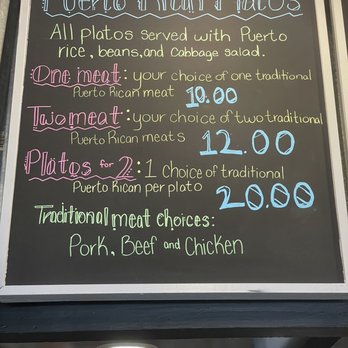 Puerto Rican Platos
All platos served with Puerto
rice, beans, and Cabbage salad.
One meat: your choice of one traditional
Puerto Rican meat 10.00
Two meat: your choice of two traditional
Puerto Rican meats 12.00
Platos for 2: 1 choice of traditional
Puerto Rican per plato 20.00
Traditional meat choices:
Pork, Beef and Chicken